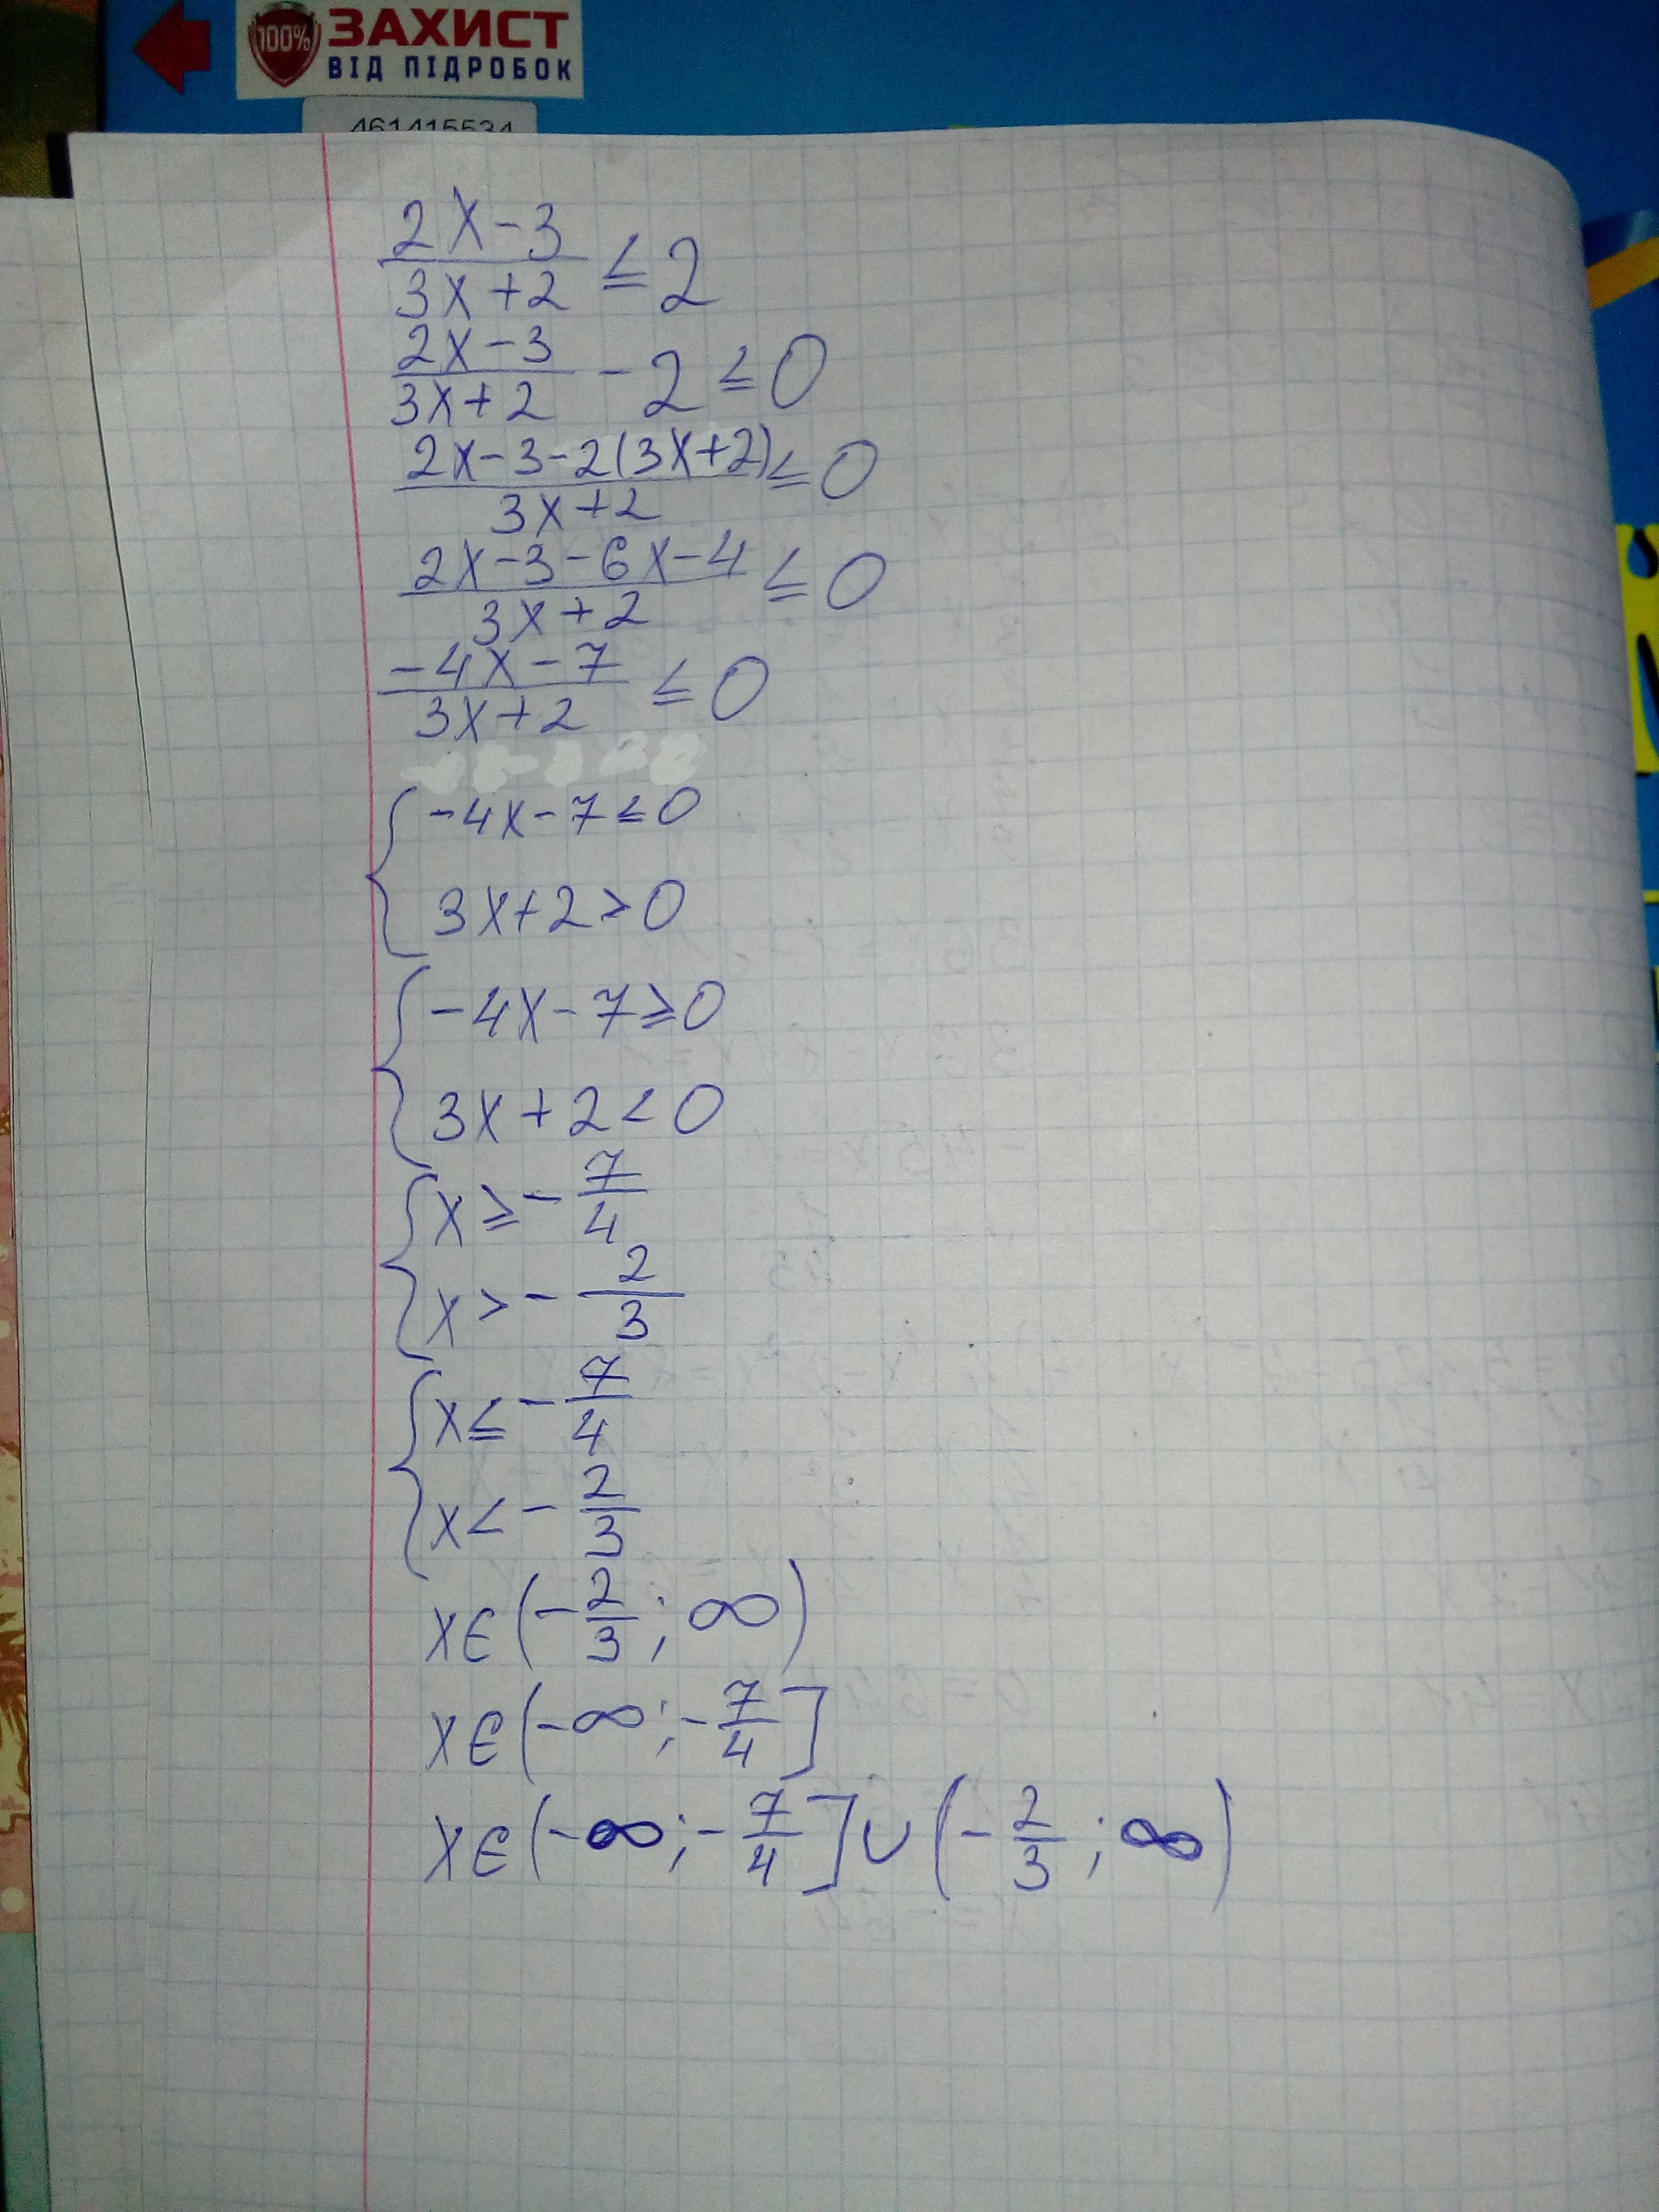 100% ЗАХИСТ
ВІД ПІДРОБОК
461415534
(2x-3)/(3x+2) ≤ 2
(2x-3)/(3x+2) - 2 ≤ 0
(2x-3-2(3x+2))/(3x+2) ≤ 0
(2x-3-6x-4)/(3x+2) ≤ 0
(-4x-7)/(3x+2) ≤ 0
{ -4x-7≤0
3x+2>0
{ -4x-7≥0
3x+2<0
{ x≥-7/4
x>-2/3
{ x≤-7/4
x<-2/3
x∈(-2/3; ∞)
x∈(-∞; -7/4]
x∈(-∞; -7/4]∪(-2/3; ∞)